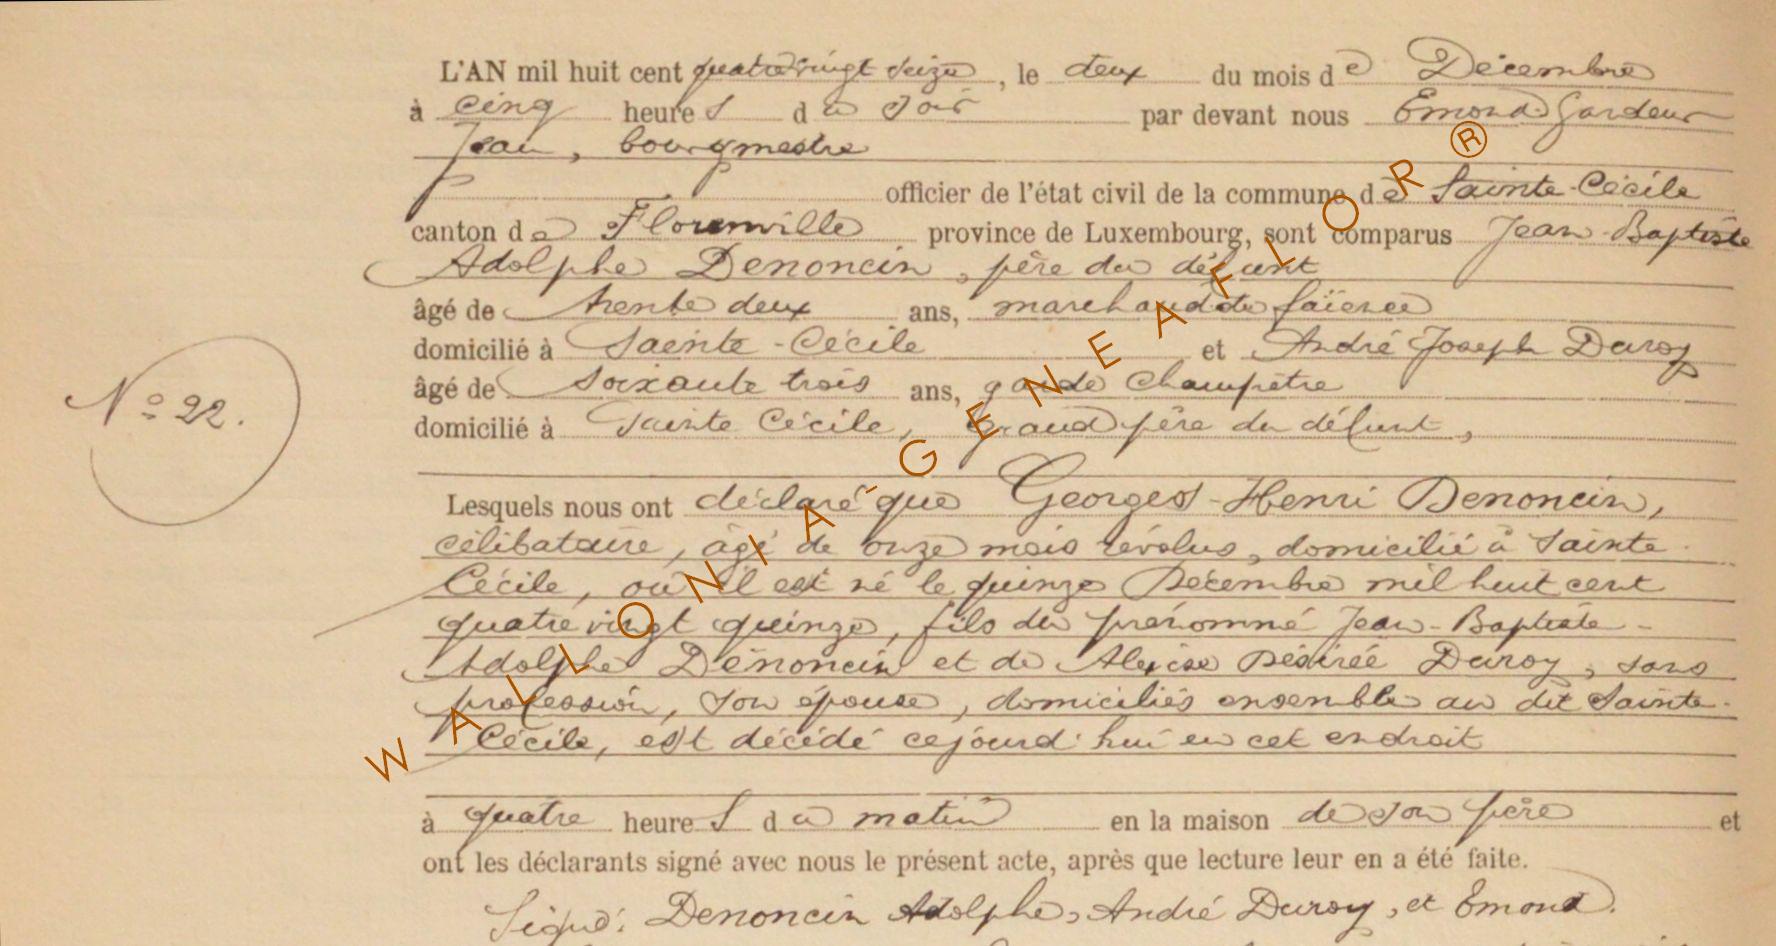 L'AN mil huit cent quatre vingt seize, le deux du mois de Décembre
à cinq heures du soir par devant nous Emond Gardeur
Jean, bourgmestre
officier de l'état civil de la commune de Sainte-Cécile
canton de Florenville province de Luxembourg, sont comparus Jean-Baptiste
Adolphe Denoncin, père du défunt
âgé de trente deux ans, marchand de faïence
domicilié à Sainte-Cécile et André Joseph Duroy
âgé de soixante trois ans, garde champêtre
N° 22.
domicilié à Sainte Cécile, Grand père du défunt,
Lesquels nous ont déclaré que Georges-Henri Denoncin,
célibataire, âgé de onze mois révolus, domicilié à Sainte-
Cécile, où il est né le quinze Décembre mil huit cent
quatre vingt quinze, fils du prénommé Jean-Baptiste-
Adolphe Denoncin et de Désirée Duroy, sans
profession, son épouse, domiciliés ensemble au dit Sainte-
Cécile, est décédé cejourd'hui en cet endroit
à quatre heures du matin en la maison de son père et
ont les déclarants signé avec nous le présent acte, après que lecture leur en a été faite.
Signé: Denoncin Adolphe, André Duroy, et Emond.
WALLONIA-GENEAFLOR®